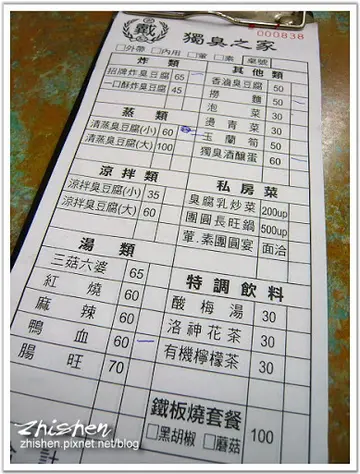 戴
獨臭之家
000838
□外帶 □內用 □葷 □素 桌號
炸 類
招牌炸臭豆腐 65
一口酥炸臭豆腐 45
蒸 類
清蒸臭豆腐(小) 60
清蒸臭豆腐(大) 100
涼拌類
涼拌臭豆腐(小) 35
涼拌臭豆腐(大) 60
湯 類
三菇六婆 65
紅燒 60
麻辣 60
鴨血 60
腸旺 70
其他類
香滷臭豆腐 50
撈麵 50
泡菜 30
燙青菜 30
玉蘭筍 50
獨臭酒釀蛋 60
私房菜
臭腐乳炒菜 200up
團圓長旺鍋 500up
葷.素團圓宴 面洽
特調飲料
酸梅湯 30
洛神花茶 30
有機檸檬茶 30
鐵板燒套餐
□黑胡椒 □蘑菇 100
合計
Zhishen
zhishen.pixnet.net/blog